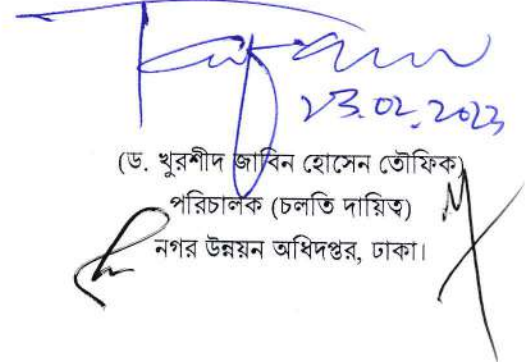 23.02.2023
(ড. খুরশীদ জাবিন হোসেন তৌফিক)
পরিচালক (চলতি দায়িত্ব)
নগর উন্নয়ন অধিদপ্তর, ঢাকা।